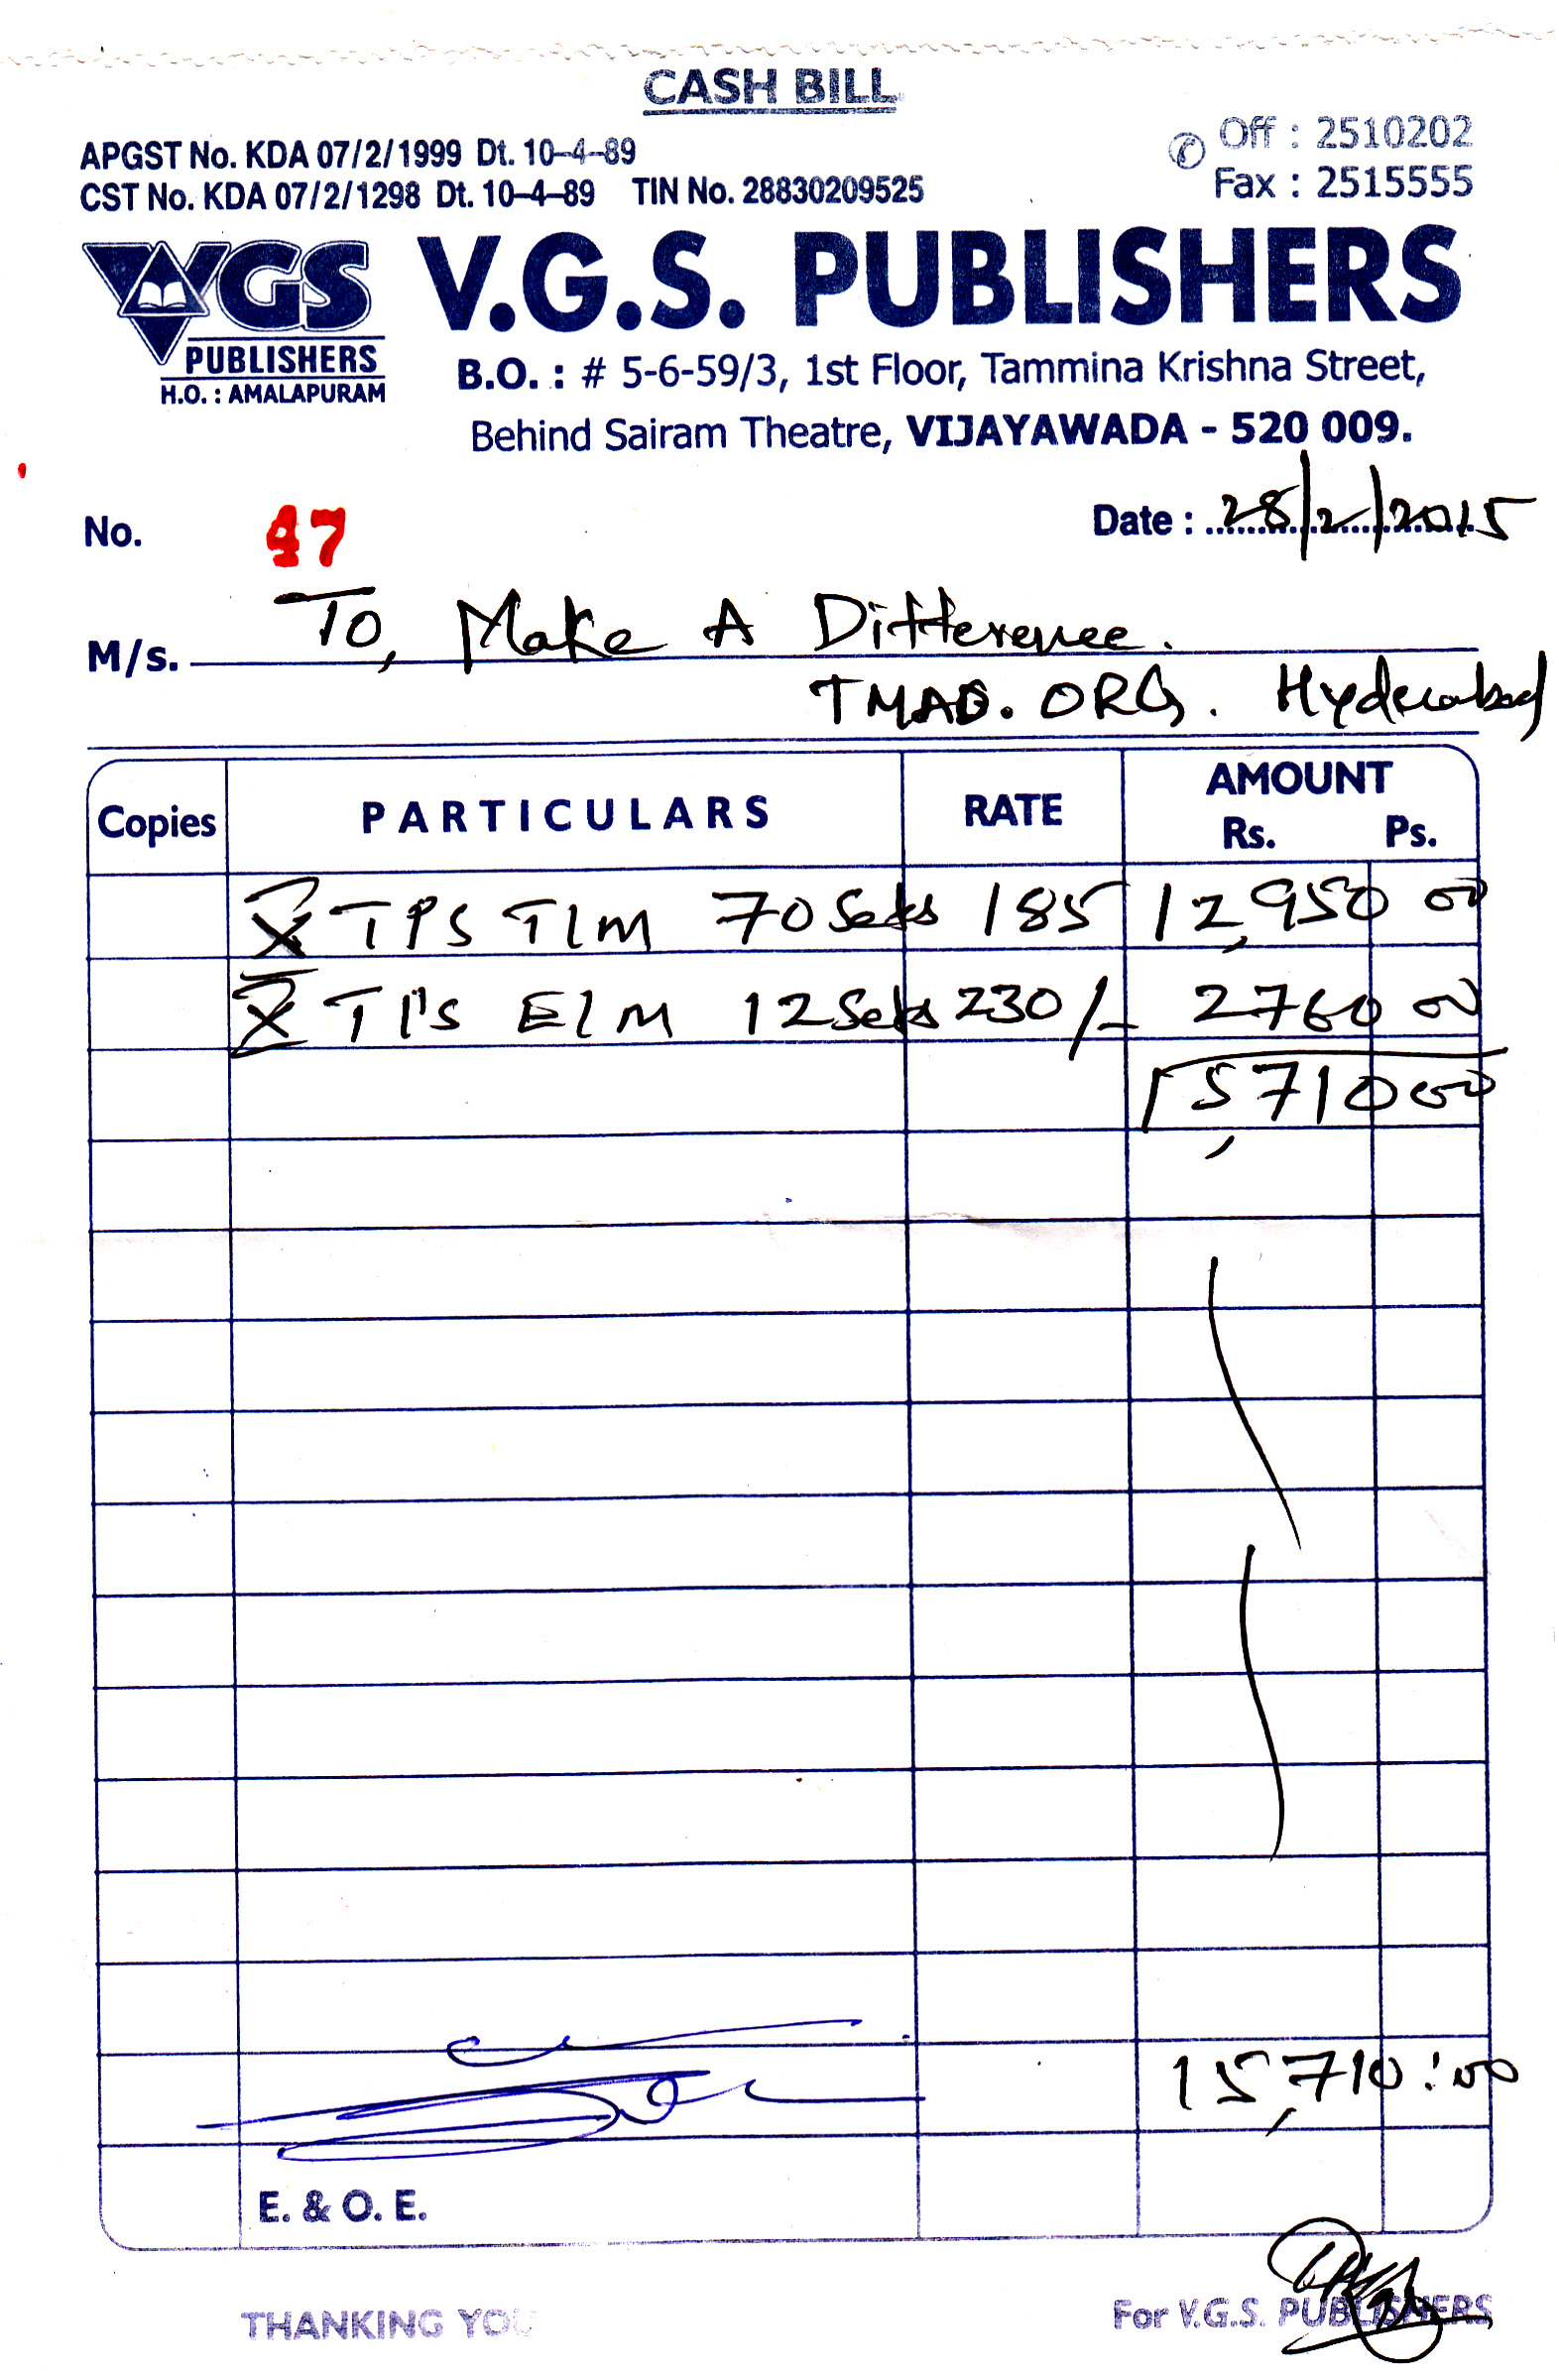 CASH BILL
APGST No. KDA 07/2/1999 Dt. 10-4-89
Off : 2510202
CST No. KDA 07/2/1298 Dt. 10-4-89 TIN No. 28830209525
Fax : 2515555
VGS
PUBLISHERS
H.O. : AMALAPURAM
V.G.S. PUBLISHERS
B.O. : # 5-6-59/3, 1st Floor, Tammina Krishna Street,
Behind Sairam Theatre, VIJAYAWADA - 520 009.
No. 47
Date : 28/2/2015
M/s. To, Make A Difference.
TMAD. ORG. Hyderabad
Copies PARTICULARS RATE AMOUNT
Rs. Ps.
X TPS TLM 70 Sets 185 12,950 00
X TPS ELM 12 Sets 230/- 2760 00
15,710 00
15,710:00
E. & O. E.
THANKING YOU
For V.G.S. PUBLISHERS